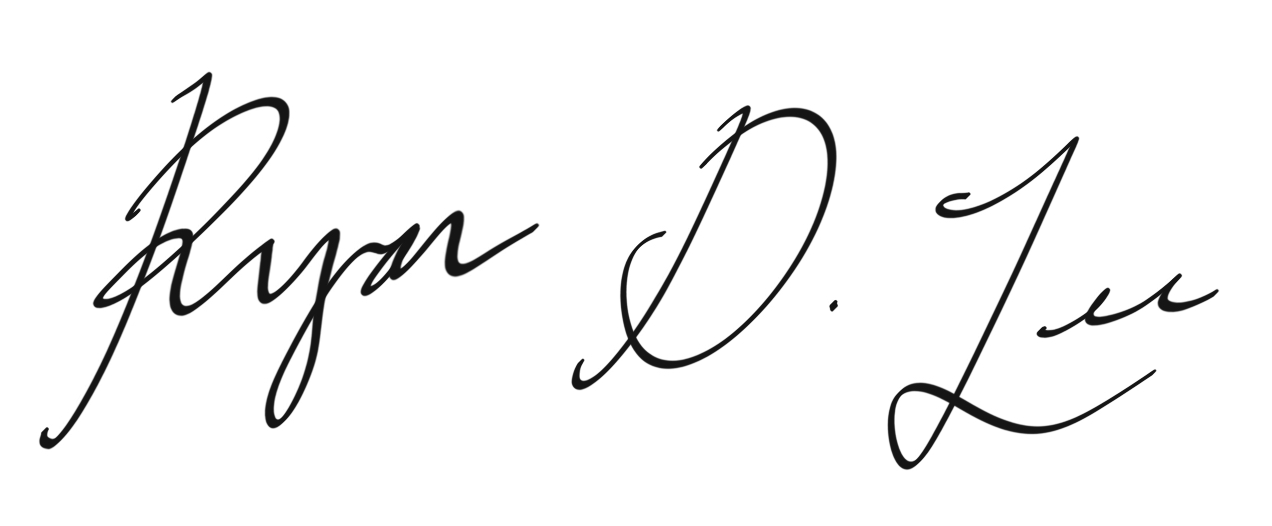 Ryan D. Lee